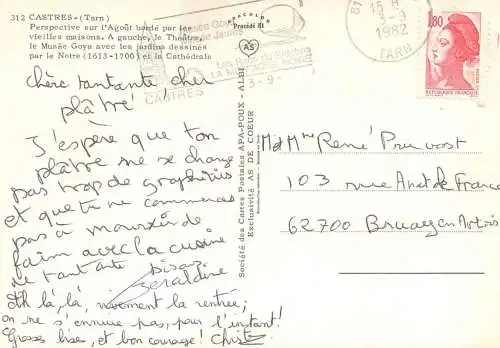 312 CASTRES - (Tarn)
Perspective sur l'Agoût bordé par les
vieilles maisons. A gauche, le Théâtre,
le Musée Goya avec les jardins dessinés
par le Notre (1613-1700) et la Cathédrale
APACOLOR
Procédé 81
AS
Société des Cartes Postales APA-POUX - ALBI
Exclusivité AS DE COEUR
CASTRES
3-9-
81
15 H
3-9
1982
TARN
1,80
REPUBLIQUE FRANÇAISE
Chère tantante, cher
plâtré,
J'espère que ton
plâtre ne se charge
pas trop de graphitis
et que tu ne commences
pas à mourir de
faim avec la cuisine
de tantante. bisou
Géraldine
Ah là, là, vivement la rentrée;
on ne s'ennuie pas, pour l'instant!
Grosses bises, et bon courage! Christ
M et Mme René Pruvost
103 rue Anat de France
62700 Bruay en Artois